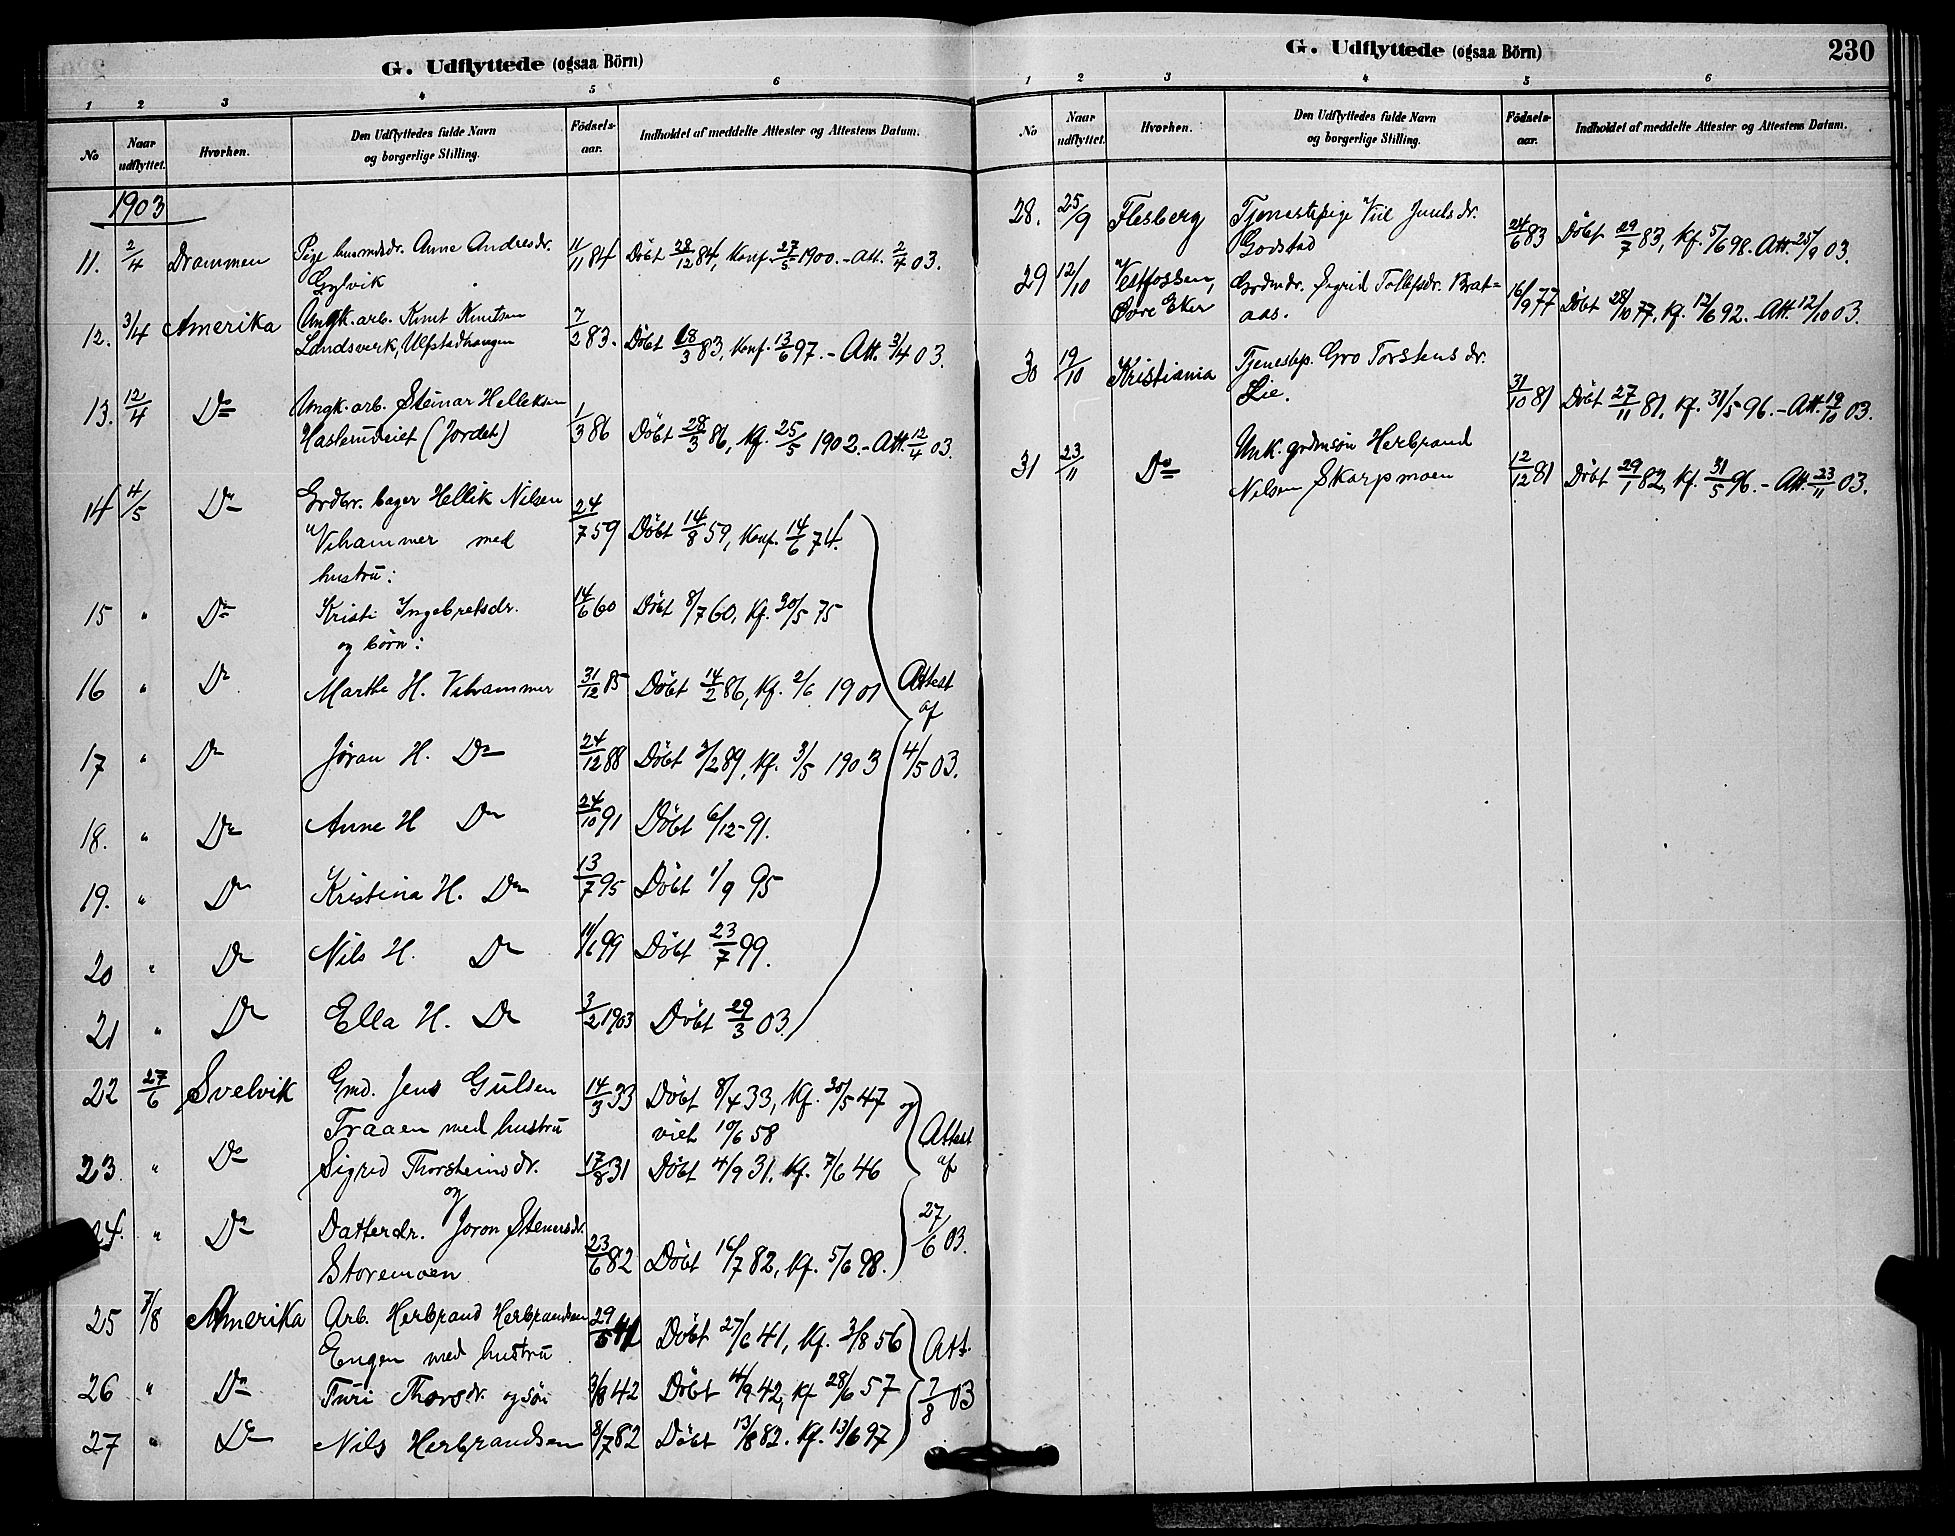 G. Udflyttede (ogsaa Börn)
1 2 3 4 5 6
No Naar udflyttet. Hvorhen. Den Udflyttedes fulde Navn og borgerlige Stilling. Födsels-aar. Indholdet af meddelte Attester og Attestens Datum.
1903
11. 2/4 Drammen Pige husmdsdr. Anne Andresdr. 11/11 84 Döbt 28/12 84, Konf. 27/5 1900. - Att. 2/4 03.
Gylvik
12. 3/4 Amerika Ungk. arb. Knut Knutsen 7/2 83. Döbt 18/3 83, Konf. 13/6 97. - Att. 3/4 03.
Landsverk, Ulfstadhaugen
13. 12/4 Do Ungk. arb. Steinar Helleksen 1/3 86 Döbt 28/3 86, Kf. 25/5 1902. - Att. 12/4 03.
Haslerudeiet (Jordet)
14 4/5 Do Grdbr. bager Hellik Nilsen 24/7 59 Döbt 14/8 59, Konf. 14/6 74.
Vihammer med
hustru:
15 " Do Kristi Ingebretsdr. 14/6 60 Döbt 8/7 60, Kf. 30/5 75
og börn:
16 " Do Marthe H. Vihammer 31/12 85 Döbt 14/2 86, Kf. 2/6 1901 Attest af
17 " Do Jöran H. Do 24/12 88 Döbt 3/2 89, Kf. 3/5 1903 4/5 03.
18. " Do Anne H Do 24/10 91 Döbt 6/12 - 91.
19. " Do Kristina H. Do 13/7 95 Döbt 1/9 95
20 " Do Nils H. Do 11/6 99 Döbt 23/7 99.
21 " Do Ella H. Do 3/2 1903 Döbt 29/3 03.
22 27/6 Svelvik Gmd. Jens Gulsen 14/3 33 Döbt 8/4 33, Kf. 30/5 47 og
Traaen med hustru viet 10/6 58 Attest
23. " Do Sigrid Thorsteinsdr. 17/8 31 Döbt 4/9 31. Kf. 7/6 46 af
og
24. " Do Datterdr. Joron Stenersdr. 23/6 82 Döbt 16/7 82, Kf. 5/6 98. 27/6 03.
Storemoen
25 7/8 Amerika Arb. Herbrand Herbrandsen 29/5 41 Döbt 27/6 41, Kf. 3/8 56 Att.
Engen med hustru
26 " Do Turi Thorsdr. og sön 3/8 42 Döbt 4/9 42, Kf 28/6 57 7/8 03
27 " Do Nils Herbrandsen 8/7 82 Döbt 13/8 82. Kf. 13/6 97
G. Udflyttede (ogsaa Börn) 230
1 2 3 4 5 6
No Naar udflyttet. Hvorhen. Den Udflyttedes fulde Navn og borgerlige Stilling. Födsels-aar. Indholdet af meddelte Attester og Attestens Datum.
28. 25/9 Flesberg Tjenestepige Juulsdr. 24/6 83 Döbt 29/7 83, Kf. 5/6 98. Att. 25/9 03.
Godstad
29 12/10 Vestfossen, Grdmdr. Sigrid Tollefsdr. Brat- 16/9 77 Döbt 28/10 77, Kf. 12/6 92. - Att. 12/10 03.
Övre Eker aas.
30 19/10 Kristiania Tjenestep. Gro Torstensdr. 31/10 81 Döbt 27/11 81, Kf. 31/5 96. - Att. 19/10 03.
Lie.
31 23/11 Do Unk. grdmsön Herbrand 12/12 81 Döbt 29/1 82, Kf. 31/5 96. - Att. 23/11 03.
Nilsen Skarpmoen